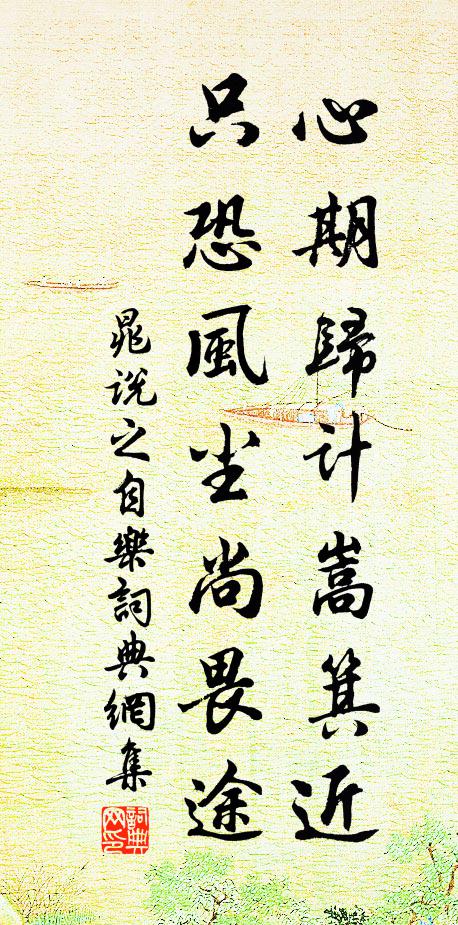 心期歸計嵩箕近
只恐風尘尚畏途
晁说之自樂詞典網集
詞典網印